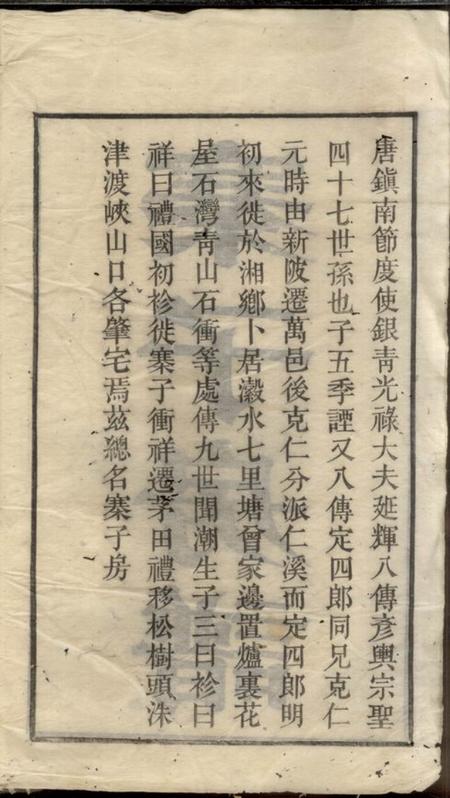 唐鎭南節度使銀靑光祿大夫𡊮輝八傳彥輿宗聖
四十七世孫也子五季諲又八傳定四郎同兄克仁
元時由新陂遷萬邑後克仁分派仁溪而定四郎明
初來徙於湘鄉卜居瀫水七里塘曾家邊置爐裏花
屋石灣靑山石衝等處傳九世聞潮生子三曰袗曰
祥曰禮國初袗徙寨子衝祥遷茅田禮移松樹頭洙
津渡峽山口各肇宅焉茲總名寨子房